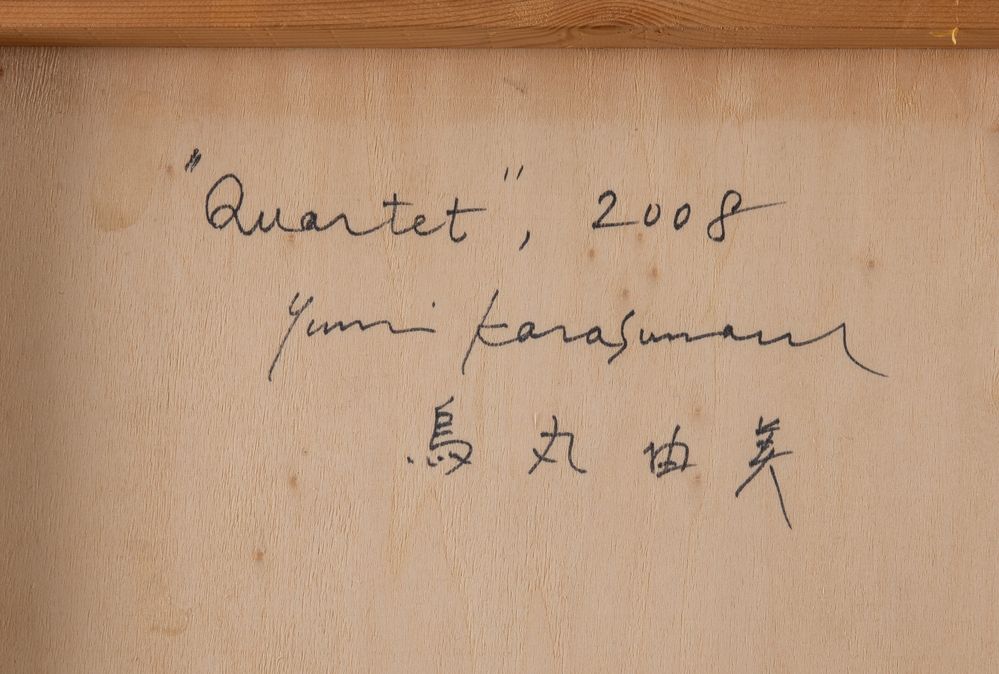 "Quartet", 2008
Yumi Karasumaru
烏丸由美